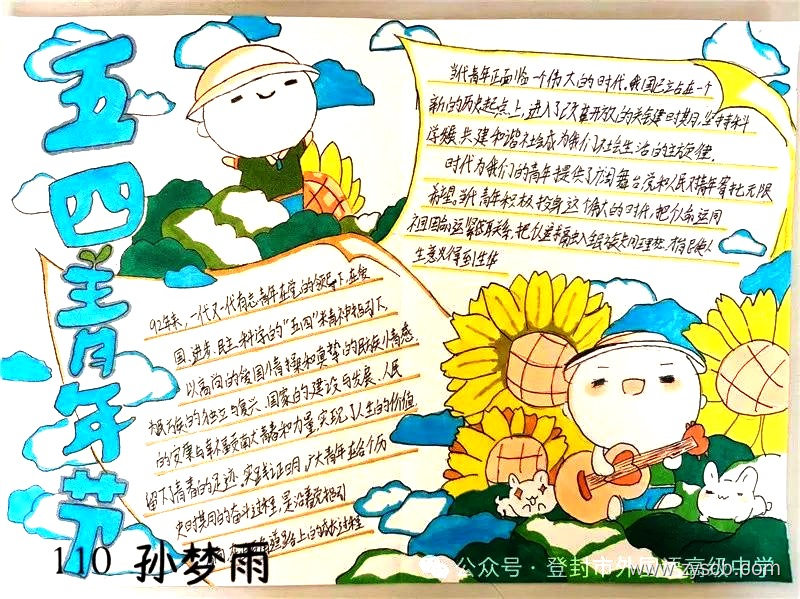 五四青年节
当代青年正面临一个伟大的时代,我国已站在一个
新的历史起点上,进入了改革开放的关键时期,坚持科
学发展共建和谐社会成为我们社会生活的主旋律.
时代为我们的青年提供了广阔舞台党和人民对青年寄托无限
希望,当代青年积极投身这个伟大的时代,把
人
生意义得到升华
92年来,一代又一代有志青年在党的领导下,在爱
国、进步、民主、科学的“五四”精神指引下,
以高尚的爱国情操和真挚的民族情感
的独立与复兴、国家的建设与发展、人民
的安康与幸福贡献青春和力量,实现了人生的价值.
留下了青春的足迹,实践证明,广大青年在各个历
史时期的奋斗过程,是沿着
上的
110 孙梦雨
公众号·登封市外国语高级中学